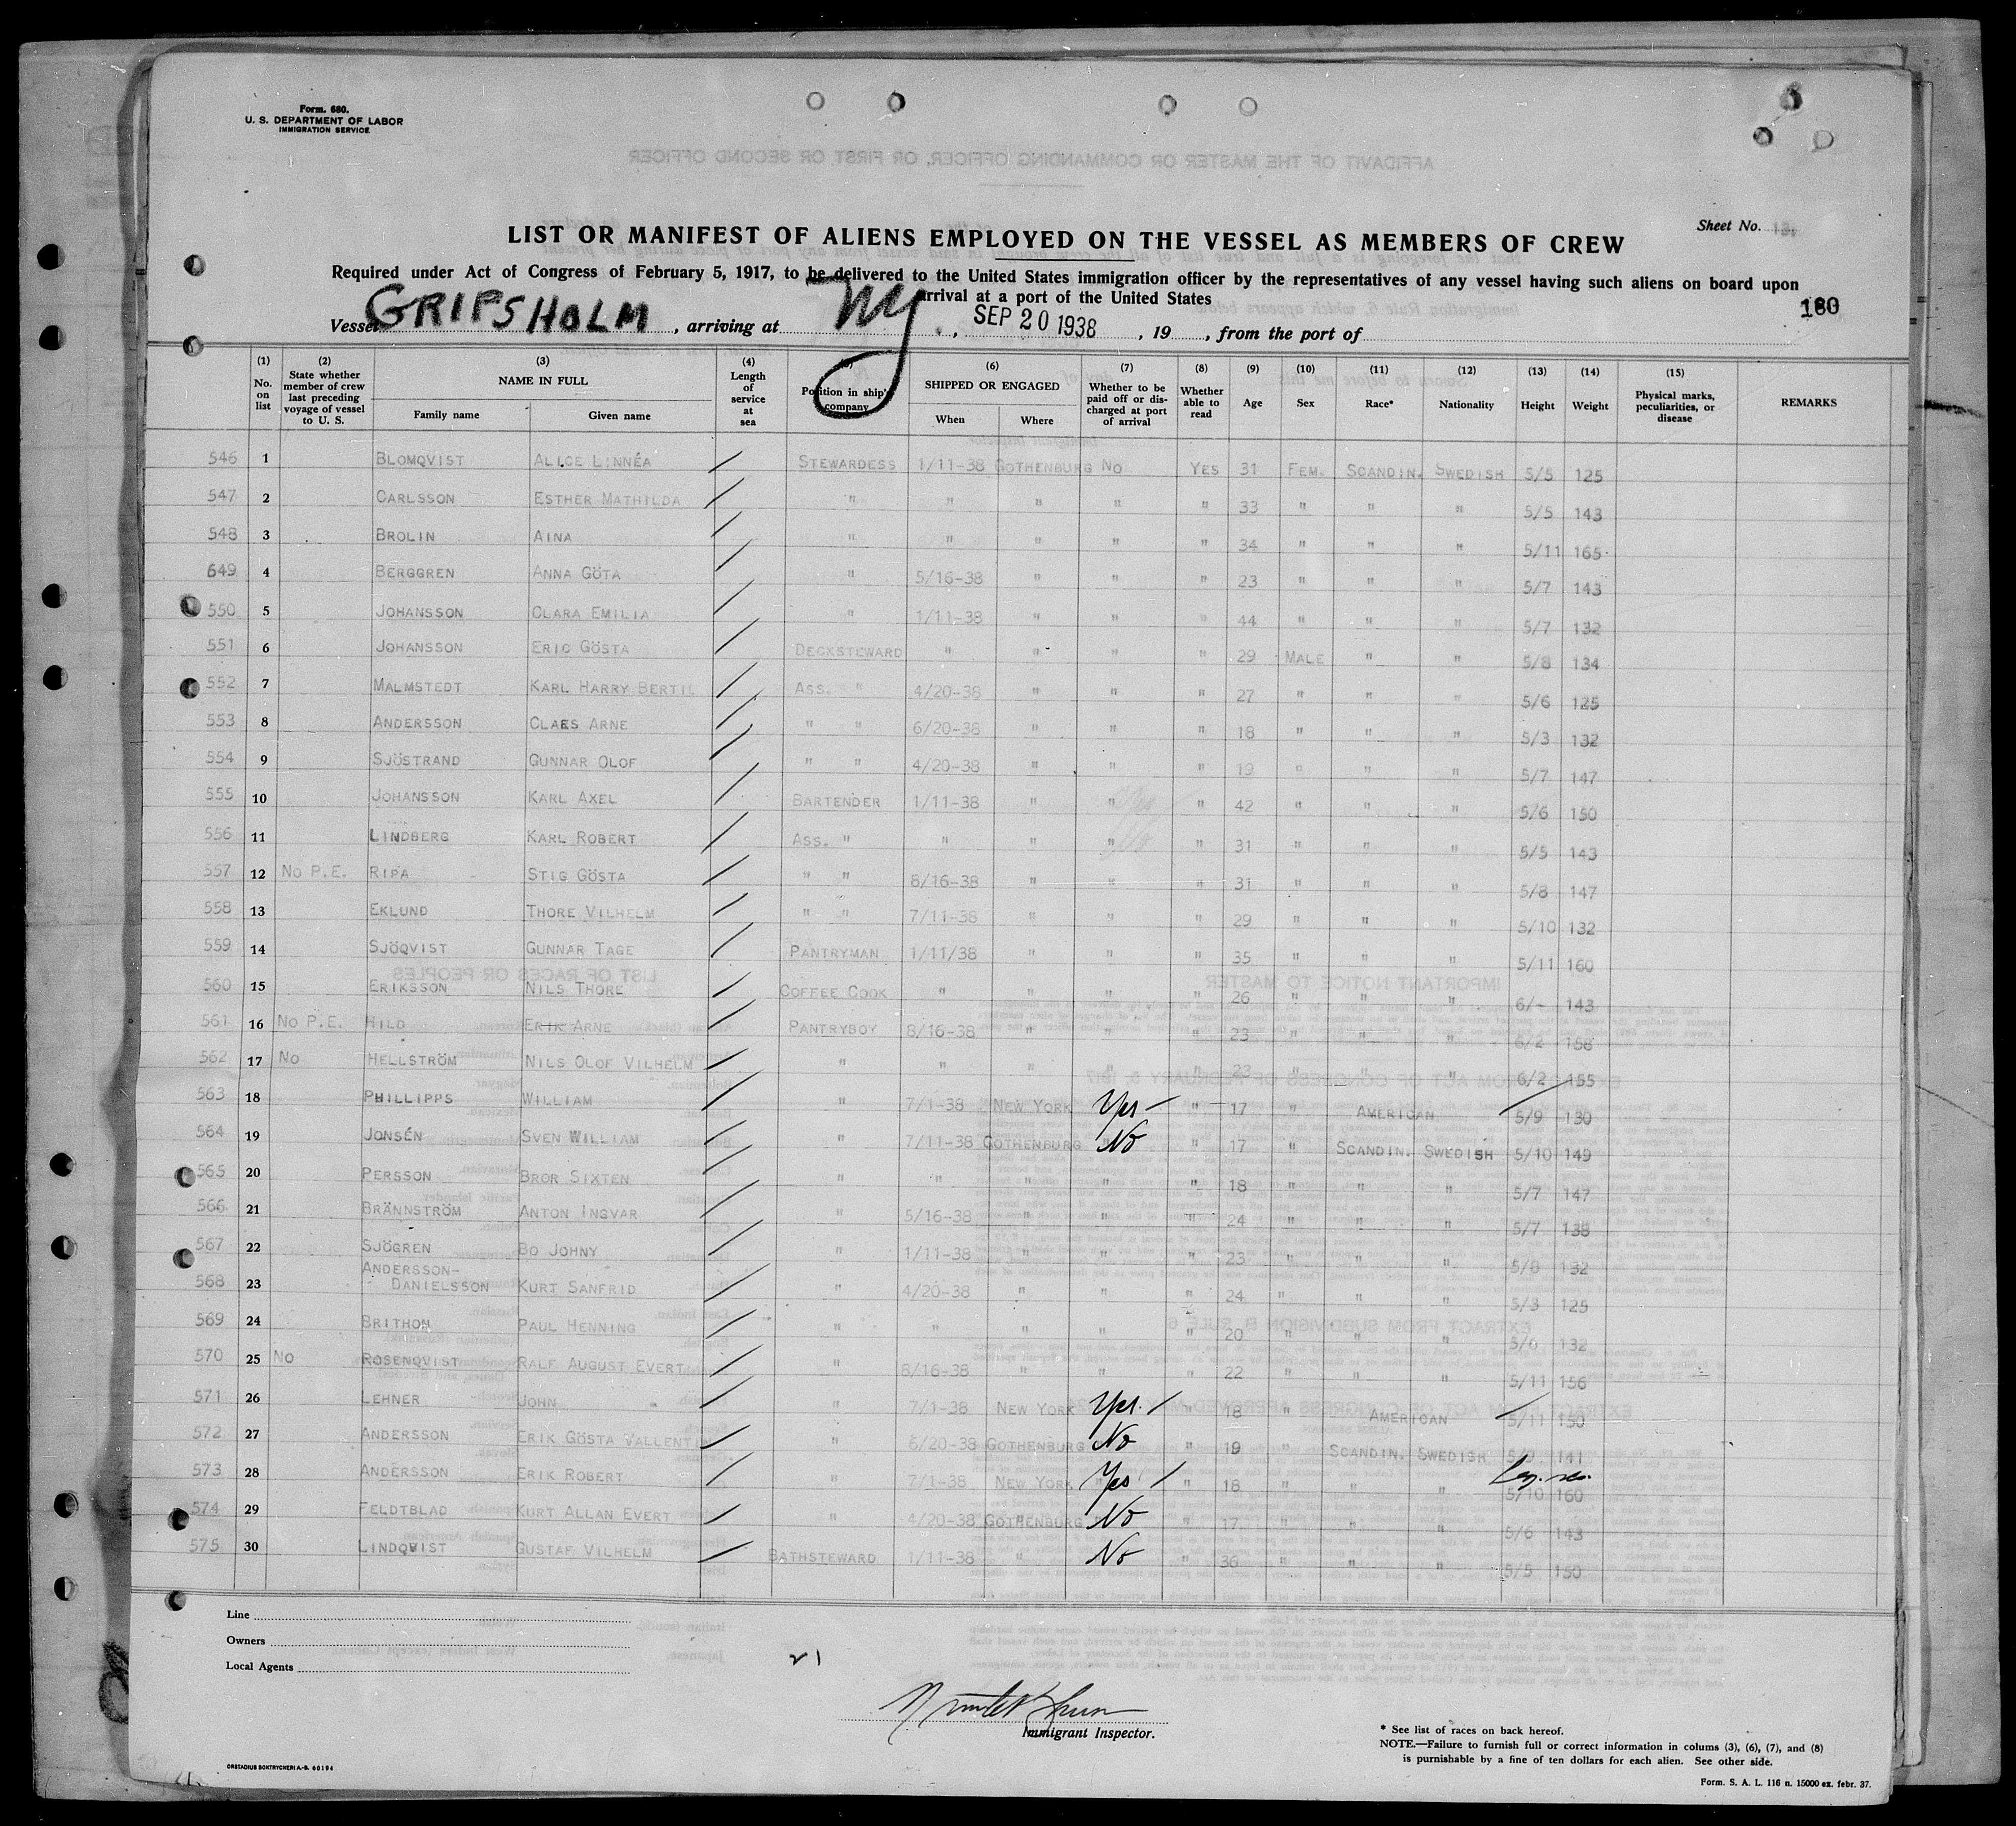 Form. 680.
U. S. DEPARTMENT OF LABOR
IMMIGRATION SERVICE
Sheet No.
LIST OR MANIFEST OF ALIENS EMPLOYED ON THE VESSEL AS MEMBERS OF CREW
Required under Act of Congress of February 5, 1917, to be delivered to the United States immigration officer by the representatives of any vessel having such aliens on board upon
arrival at a port of the United States
180
Vessel GRIPSHOLM, arriving at NY., SEP 20 1938, 19, from the port of
(1) No. on list (2) State whether member of crew last preceding voyage of vessel to U. S. (3) NAME IN FULL Family name Given name (4) Length of service at sea Position in ship's company (6) SHIPPED OR ENGAGED When Where (7) Whether to be paid off or discharged at port of arrival (8) Whether able to read (9) Age (10) Sex (11) Race* (12) Nationality (13) Height (14) Weight (15) Physical marks, peculiarities, or disease REMARKS
546 1 BLOMQVIST ALICE LINNÉA / STEWARDESS 1/11-38 GOTHENBURG NO YES 31 FEM. SCANDIN. SWEDISH 5/5 125
547 2 CARLSSON ESTHER MATHILDA / " " " " " 33 " " " 5/5 143
548 3 BROLIN AINA / " " " " " 34 " " " 5/11 165
649 4 BERGGREN ANNA GÖTA / " 5/16-38 " " " 23 " " " 5/7 143
550 5 JOHANSSON CLARA EMILIA / " 1/11-38 " " " 44 " " " 5/7 132
551 6 JOHANSSON ERIC GÖSTA / DECKSTEWARD " " " " 29 MALE " " 5/8 134
552 7 MALMSTEDT KARL HARRY BERTIL / ASS. " 4/20-38 " " " 27 " " " 5/6 125
553 8 ANDERSSON CLAES ARNE / " " 6/20-38 " " " 18 " " " 5/3 132
554 9 SJÖSTRAND GUNNAR OLOF / " " 4/20-38 " " " 19 " " " 5/7 147
555 10 JOHANSSON KARL AXEL / BARTENDER 1/11-38 " " " 42 " " " 5/6 150
556 11 LINDBERG KARL ROBERT / ASS. " " " " " 31 " " " 5/5 143
557 12 NO P.E. RIPA STIG GÖSTA / " " 8/16-38 " " " 31 " " " 5/8 147
558 13 EKLUND THORE VILHELM / " " 7/11-38 " " " 29 " " " 5/10 132
559 14 SJÖQVIST GUNNAR TAGE / PANTRYMAN 1/11/38 " " " 35 " " " 5/11 160
560 15 ERIKSSON NILS THORE / COFFEE COOK " " " " 26 " " " 6/- 143
561 16 NO P.E. HILD ERIK ARNE / PANTRYBOY 8/16-38 " " " 23 " " " 6/2 158
562 17 NO HELLSTRÖM NILS OLOF VILHELM / " " " " " 23 " " " 6/2 155
563 18 PHILLIPPS WILLIAM / " 7/1-38 NEW YORK Yes - " 17 " AMERICAN / 5/9 130
564 19 JONSÉN SVEN WILLIAM / " 7/11-38 GOTHENBURG No " 17 " SCANDIN. SWEDISH 5/10 149
565 20 PERSSON BROR SIXTEN / " " " " " 18 " " " 5/7 147
566 21 BRÄNNSTRÖM ANTON INGVAR / " 5/16-38 " " " 24 " " " 5/7 138
567 22 SJÖGREN BO JOHNY / " 1/11-38 " " " 23 " " " 5/8 132
568 23 ANDERSSON-DANIELSSON KURT SANFRID / " 4/20-38 " " " 24 " " " 5/3 125
569 24 BRITHON PAUL HENNING / " " " " " 20 " " " 5/6 132
570 25 NO ROSENQVIST RALF AUGUST EVERT / " 8/16-38 " " " 22 " " " 5/11 156
571 26 LEHNER JOHN / " 7/1-38 NEW YORK Yes. / " 18 " AMERICAN / 5/11 150
572 27 ANDERSSON ERIK GÖSTA VALLENTIN / " 6/20-38 GOTHENBURG No " 19 " SCANDIN. SWEDISH 5/9 141
573 28 ANDERSSON ERIK ROBERT / " 7/1-38 NEW YORK Yes / " 18 " " " 5/10 160
574 29 FELDTBLAD KURT ALLAN EVERT / " 4/20-38 GOTHENBURG No " 17 " " " 5/6 143
575 30 LINDQVIST GUSTAF VILHELM / BATHSTEWARD 1/11-38 " No " 36 " " " 5/5 150
Line
Owners
Local Agents
21
Immigrant Inspector.
* See list of races on back hereof.
NOTE.—Failure to furnish full or correct information in colums (3), (6), (7), and (8)
is purnishable by a fine of ten dollars for each alien. See other side.
ORSTADIUS BOKTRYCKERI A.-B. 60194
Form. S. A. L. 116 n. 15000 ex. febr. 37.